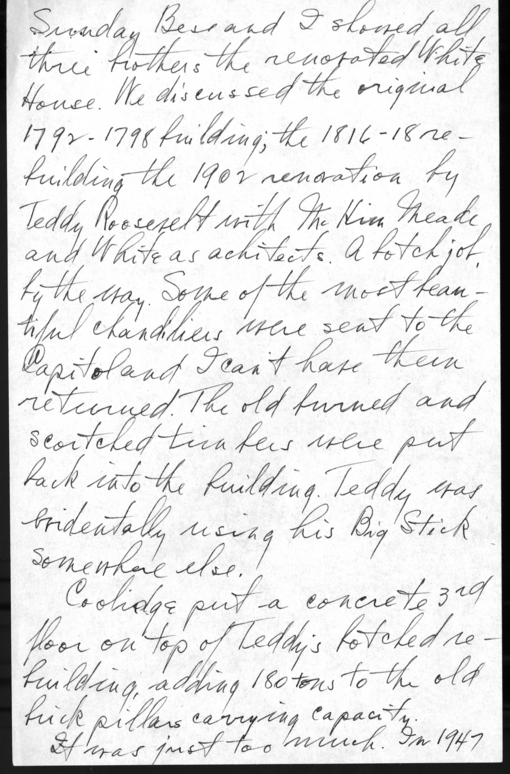 Sunday Bess and I showed all
three brothers the renovated White
House. We discussed the original
1792-1798 building; the 1816-18 re-
building the 1902 renovation by
Teddy Roosevelt with McKim Meade
and White as achitects. A botch job,
by the way. Some of the most beau-
tiful chandiliers were sent to the
Capitol and I can't have them
returned. The old burned and
scortched timbers were put
back into the building. Teddy was
evidentally using his Big Stick
somewhere else.
Coolidge put a concrete 3rd
floor on top of Teddy's botched re-
building, adding 180 tons to the old
brick pillars carrying capacity.
It was just too much. In 1947